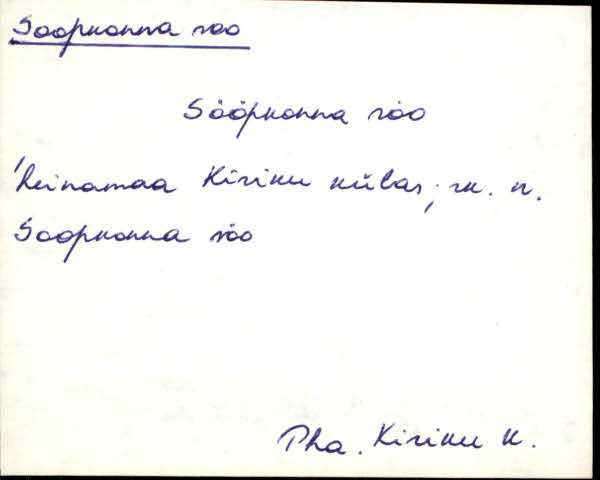 Soopkonna soo
Sȯȯpkonna sȯo
'heinamaa Kiriku külas; rk. n.
Soopkonna soo
Pha. Kiriku k.